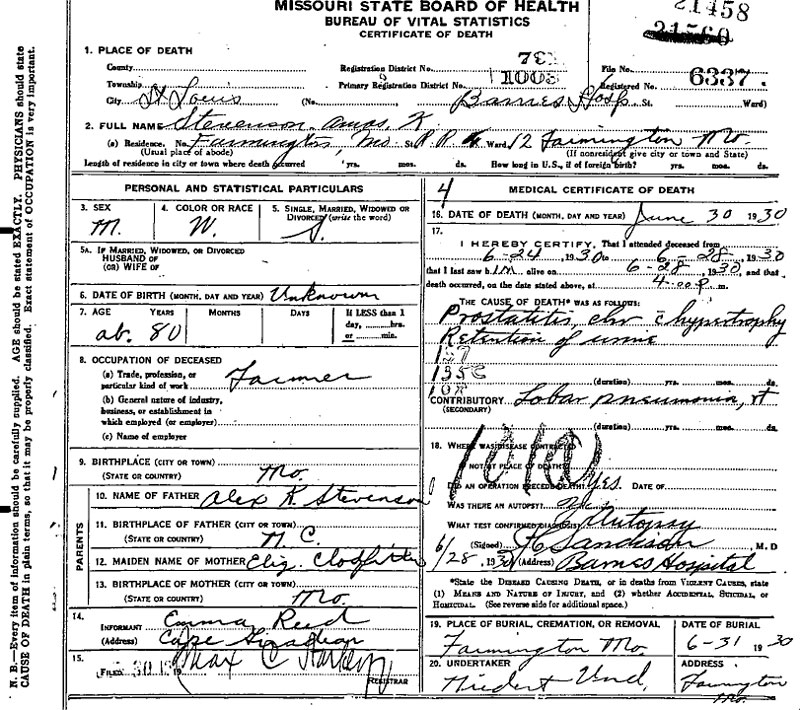 MISSOURI STATE BOARD OF HEALTH
BUREAU OF VITAL STATISTICS
CERTIFICATE OF DEATH
21458
21560
1. PLACE OF DEATH
County
Registration District No.
File No.
Township
Primary Registration District No. 1003
Registered No. 6337.
City St Louis (No. Barnes Hosp St. Ward)
2. FULL NAME Stevenson Amos K
(a) Residence. No. Farmington, Mo St. R.R. Ward. 12 Farmington Mo.
(Usual place of abode) (If nonresident give city or town and State)
Length of residence in city or town where death occurred yrs. mos. ds. How long in U.S., if of foreign birth? yrs. mos. ds.
PERSONAL AND STATISTICAL PARTICULARS
3. SEX M.
4. COLOR OR RACE W.
5. SINGLE, MARRIED, WIDOWED OR DIVORCED (write the word) S.
5A. IF MARRIED, WIDOWED, OR DIVORCED
HUSBAND OF
(OR) WIFE OF
6. DATE OF BIRTH (MONTH, DAY AND YEAR) Unknown
7. AGE YEARS MONTHS DAYS If LESS than 1
day, hrs.
or min.
ab. 80
8. OCCUPATION OF DECEASED
(a) Trade, profession, or
particular kind of work Farmer
(b) General nature of industry,
business, or establishment in
which employed (or employer)
(c) Name of employer
9. BIRTHPLACE (CITY OR TOWN)
(STATE OR COUNTRY) Mo.
PARENTS
10. NAME OF FATHER Alex K. Stevenson
11. BIRTHPLACE OF FATHER (CITY OR TOWN)
(STATE OR COUNTRY) N C.
12. MAIDEN NAME OF MOTHER Eliz
13. BIRTHPLACE OF MOTHER (CITY OR TOWN)
(STATE OR COUNTRY) Mo.
14.
INFORMANT Emma Reed
(Address) Cape Giradeau
15.
FILED 30 19 Max C Starkloff
REGISTRAR
4
MEDICAL CERTIFICATE OF DEATH
16. DATE OF DEATH (MONTH, DAY AND YEAR) June 30 1930
17.
I HEREBY CERTIFY, That I attended deceased from
6-24, 1930 to 6-28, 1930
that I last saw him alive on 6-28, 1930, and that
death occurred, on the date stated above, at 4:00 P m.
THE CAUSE OF DEATH* WAS AS FOLLOWS:
Prostatitis, chr c hypertrophy
Retention of urine
137
135
108
(duration) yrs. mos. ds.
CONTRIBUTORY Lobar pneumonia, rt
(SECONDARY)
(duration) yrs. mos. ds.
18. WHERE WAS DISEASE CONTRACTED
IF NOT AT PLACE OF DEATH?
DID AN OPERATION PRECEDE DEATH? Yes. DATE OF
WAS THERE AN AUTOPSY?
WHAT TEST CONFIRMED DIAGNOSIS? Autopsy
(Signed) Sanderson M. D
6/28, 1930 (Address) Barnes Hospital
*State the DISEASE CAUSING DEATH, or in deaths from VIOLENT CAUSES, state
(1) MEANS AND NATURE OF INJURY, and (2) whether ACCIDENTAL, SUICIDAL, or
HOMICIDAL. (See reverse side for additional space.)
19. PLACE OF BURIAL, CREMATION, OR REMOVAL
Farmington Mo.
DATE OF BURIAL
6-31 1930
20. UNDERTAKER
Niedert Und.
ADDRESS
Farmington
Mo.
N. B.—Every item of information should be carefully supplied. AGE should be stated EXACTLY. PHYSICIANS should state
CAUSE OF DEATH in plain terms, so that it may be properly classified. Exact statement of OCCUPATION is very important.